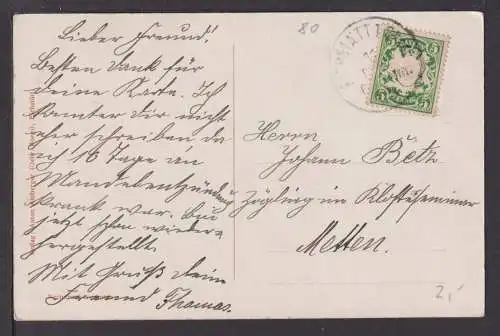 Lieber Freund!
Besten Dank für
deine Karte. Ich
konnte dir nicht
eher schreiben, da
ich 10 Tage an
Mandelentzündung
krank war. bin
jetzt schon wieder
hergestellt.
Mit Gruß dein
Freund Thomas.
80
5 5
5 5
Herrn
Johann Betz
Zögling im Klosterseminar
Metten.
2,-